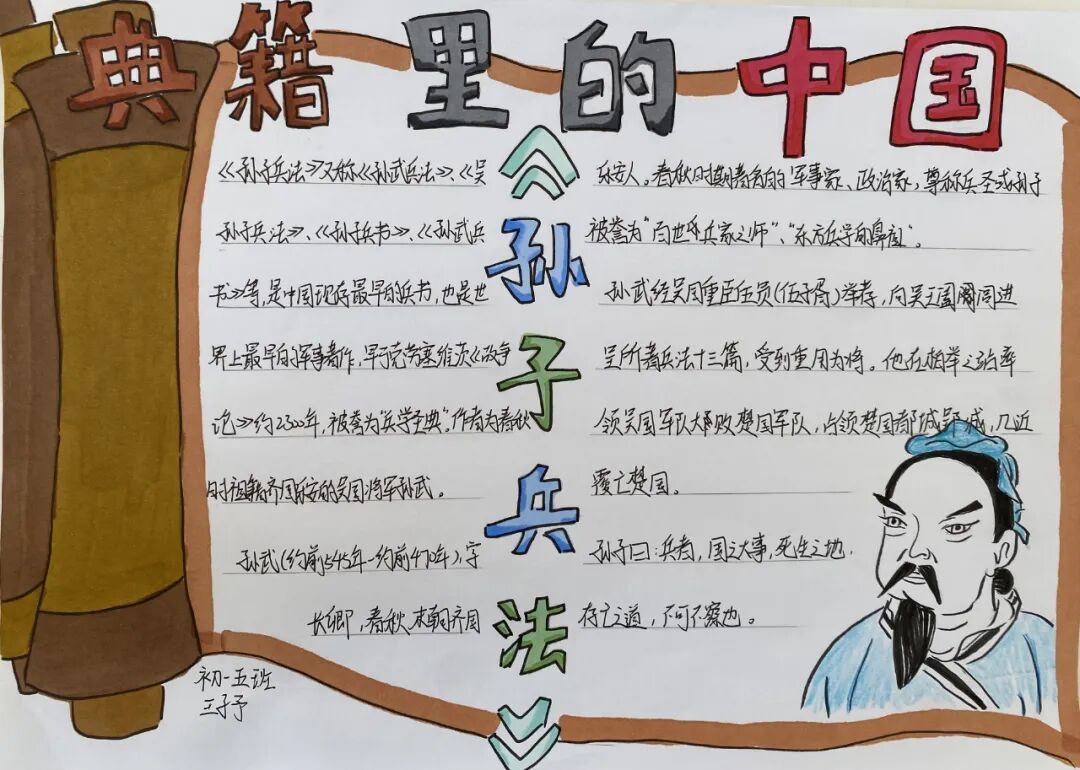 典籍里的中国
《孙子兵法》又称《孙武兵法》、《吴
孙子兵法》、《孙子兵书》、《孙武兵
书》等,是中国现存最早的兵书,也是世
界上最早的军事著作,早于克劳塞维茨《战争
论》约2300年,被誉为“兵学圣典”。作者为春秋
时祖籍齐国乐安的吴国将军孙武。
孙武(约前545年-约前470年),字
长卿,春秋末期齐国
《孙子兵法》
乐安人。春秋时期著名的军事家、政治家,尊称兵圣或孙子
被誉为“百世兵家之师”、“东方兵学的鼻祖”。
孙武经吴国重臣伍员(伍子胥)举荐,向吴王阖闾进
呈所著兵法十三篇,受到重用为将。他在柏举之战率
领吴国军队大败楚国军队,占领楚国都城郢城,几近
覆亡楚国。
孙子曰:兵者,国之大事,死生之地,
存亡之道,不可不察也。
初一五班